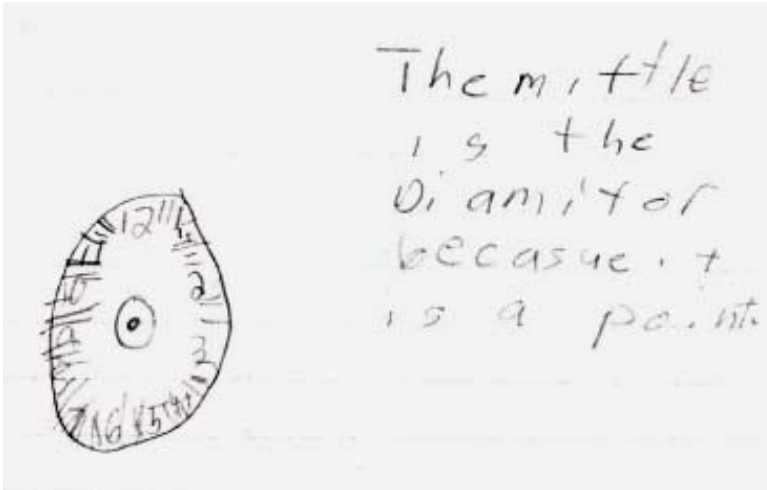 The mittle
is the
Diamitor
becasue it
is a point.
12
1
2
3
5
6